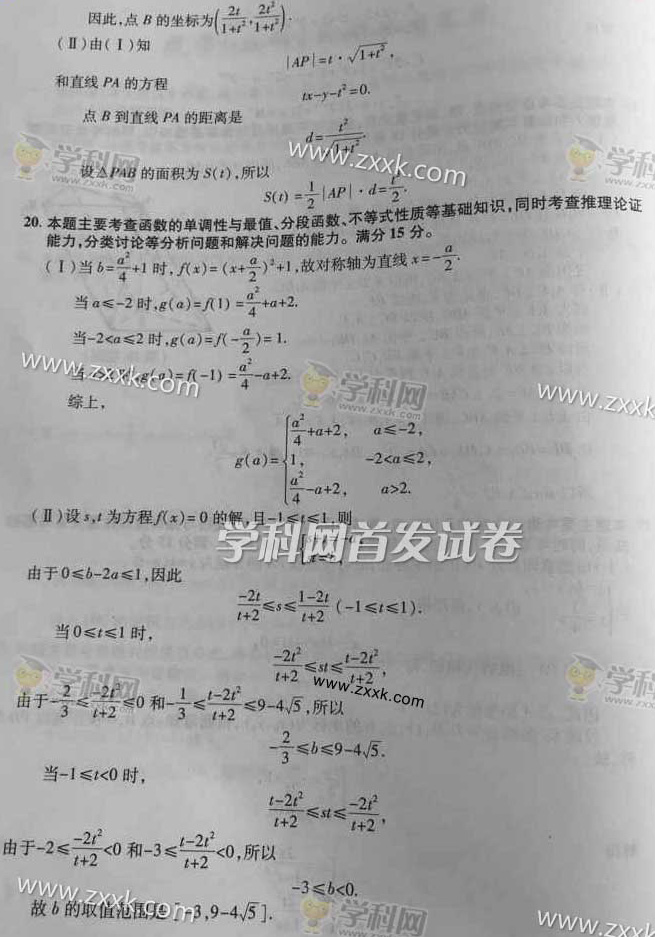 因此,点 B 的坐标为(2t/(1+t²), 2t²/(1+t²)).
(Ⅱ)由(Ⅰ)知
|AP|=t·√(1+t²),
和直线 PA 的方程
tx-y-t²=0.
点 B 到直线 PA 的距离是
d=t²/√(1+t²).
设△PAB 的面积为 S(t),所以
S(t)=1/2|AP|·d=t³/2.
20. 本题主要考查函数的单调性与最值、分段函数、不等式性质等基础知识,同时考查推理论证
能力,分类讨论等分析问题和解决问题的能力。满分 15 分。
(Ⅰ)当 b=a²/4+1 时, f(x)=(x+a/2)²+1,故对称轴为直线 x=-a/2.
当 a≤-2 时,g(a)=f(1)=a²/4+a+2.
当-2<a≤2 时,g(a)=f(-a/2)=1.
当 g(a)=f(-1)=a²/4-a+2.
综上,
g(a)={a²/4+a+2, a≤-2,
1, -2<a≤2,
a²/4-a+2, a>2.
(Ⅱ)设 s,t 为方程 f(x)=0 的解,且-1≤t≤1,则
由于 0≤b-2a≤1,因此
-2t/(t+2)≤s≤(1-2t)/(t+2) (-1≤t≤1).
当 0≤t≤1 时,
-2t²/(t+2)≤st≤(t-2t²)/(t+2),
由于-2/3≤-2t²/(t+2)≤0 和-1/3≤(t-2t²)/(t+2)≤9-4√5,所以
-2/3≤b≤9-4√5.
当-1≤t<0 时,
(t-2t²)/(t+2)≤st≤-2t²/(t+2),
由于-2≤-2t²/(t+2)<0 和-3≤(t-2t²)/(t+2)<0,所以
-3≤b<0.
故 b 的取值范围是[-3,9-4√5].
学科网
www.zxxk.com
学科网首发试卷